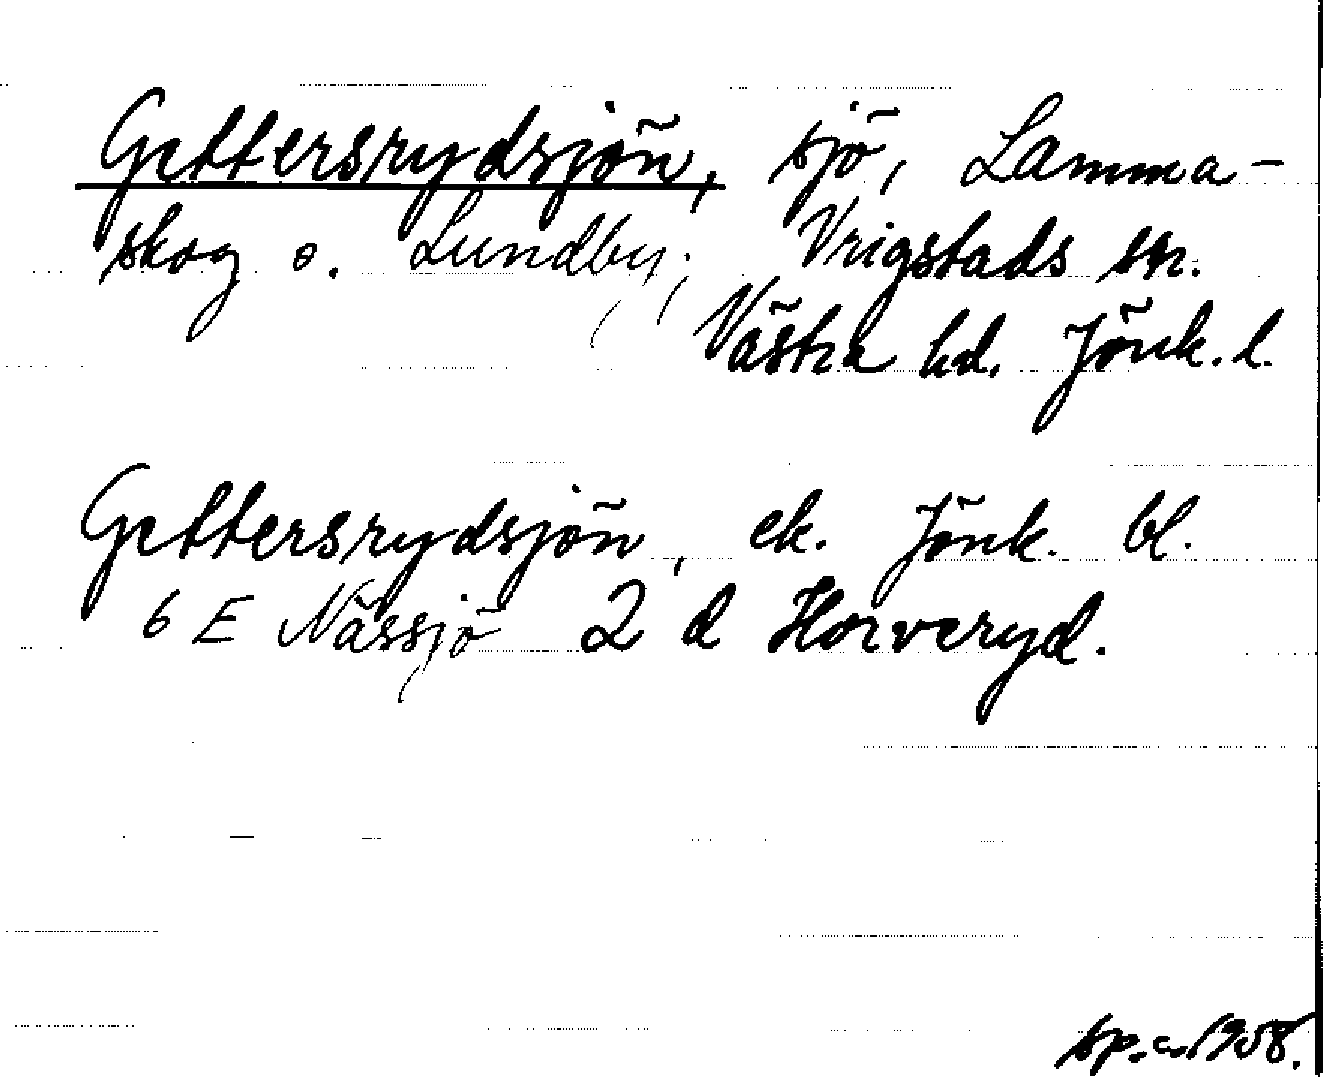 Gettersrydsjön, sjö, Lamma-
skog o. Lundby, Vrigstads sn.
Västra hd. Jönk. l.
Gettersrydsjön, ek. Jönk. bl.
6 E Nässjö 2 d Horveryd.
sp.c. 1958.